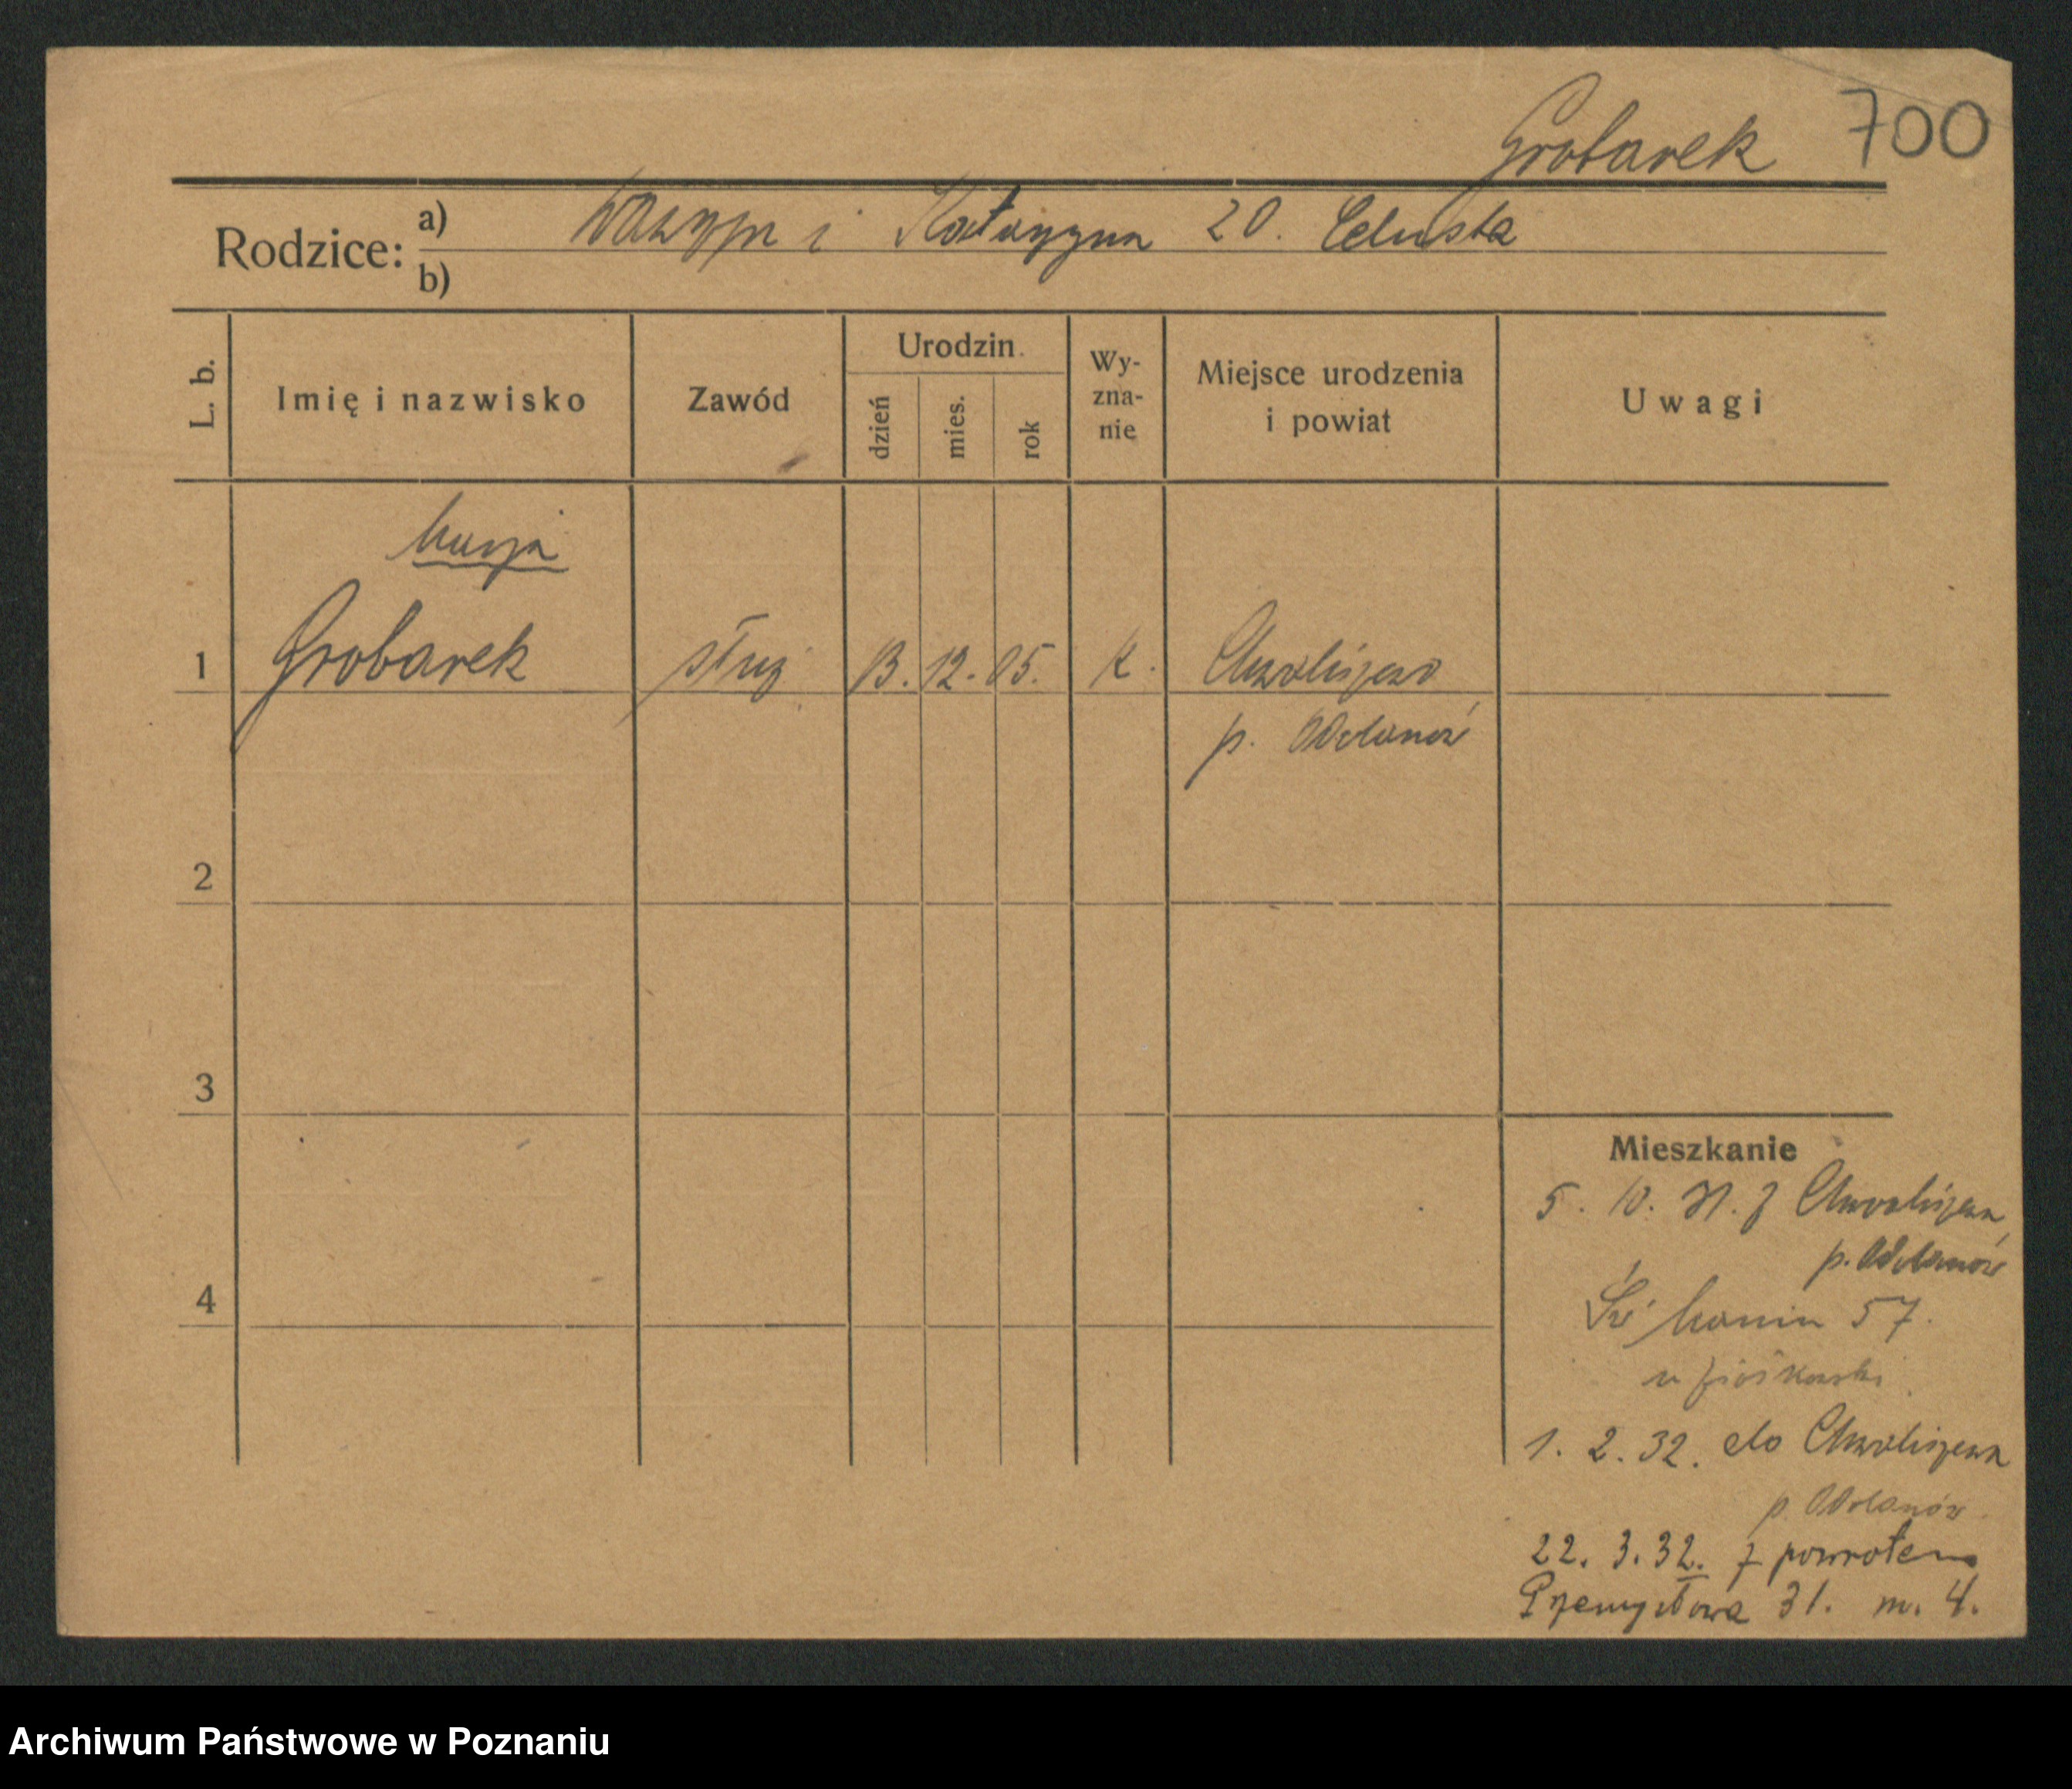 Grobarek 700
Rodzice: a) i Katarzyna zd. Celusta
b)
L. b.
Imię i nazwisko
Zawód
Urodzin.
dzień
mies.
rok
Wy-
zna-
nie
Miejsce urodzenia
i powiat
Uwagi
Marja
1 Grobarek służ 13. 12. 05. K. Chwaliszewo
p. Odolanów
2
3
4
Mieszkanie
5. 10. 31. z Chwaliszewa
p. Odolanów
Św Marcin 57.
u
1. 2. 32. do Chwaliszewa
p. Odolanów
22. 3. 32. z powrotem
Przemysłowa 31. m. 4.
Archiwum Państwowe w Poznaniu